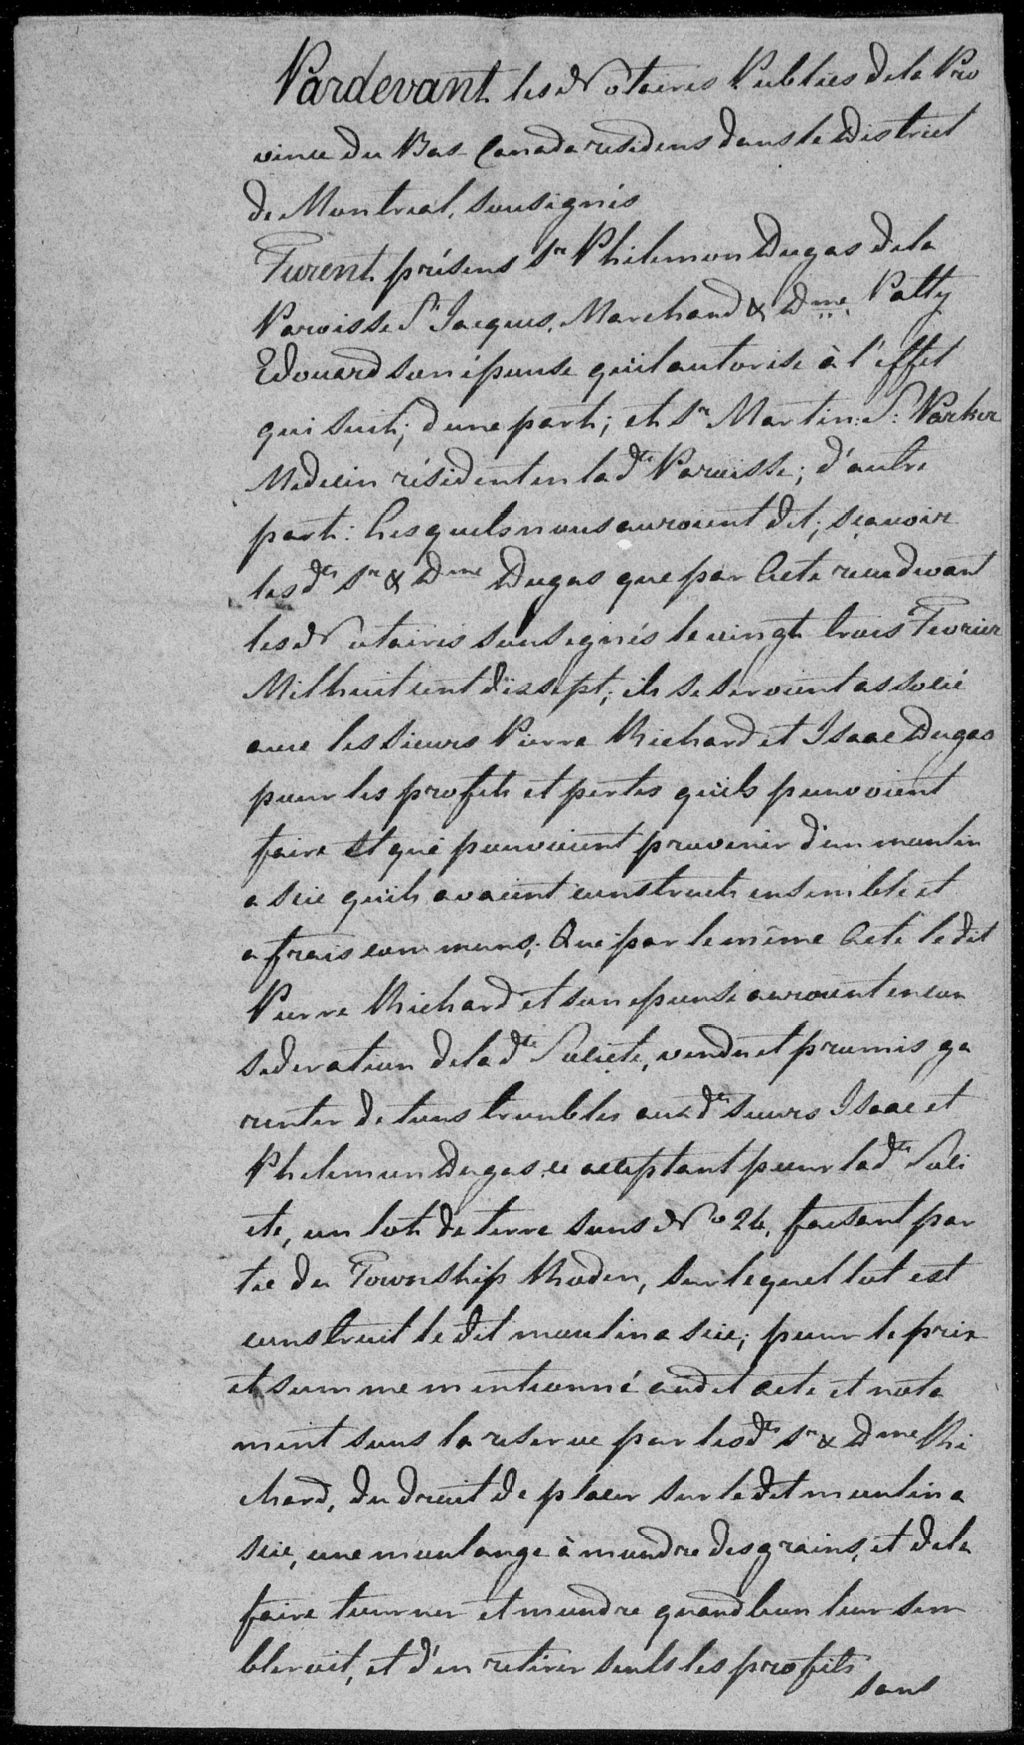 Pardevant les Notaires Publics de la Pro
vince du Bas Canada residens dans le District
de Montreal, sousignés
Furent présens Sr Philemon Dugas de la
Paroisse St Jacques, Marchand & Dme Patty
Edouard son épouse qu'il autorise à l'effet
qui suit; d'une part; et Sr Martin: S: Parker
Medecin résident en lad.te Paroisse; d'autre
part: Lesquels nous auroient dit; sçavoir
les dts Sr & Dme Dugas que par Acte reçu devant
les Notaires sousignés le vingt trois Fevrier
Mil huit cent dixsept; ils se seroient associé
avec les Sieurs Pierre Richard et Isaac Dugas
pour les profits et pertes qu'ils pouvoient
faire et qui pouvoient provenir d'un moulin
a scie qu'ils avaient construit ensemble et
a frais communs; Que par le même Acte le dit
Pierre Richard et son epouse auroient en con
sederation de la dte Societe, vendu et promis ga
rentir de tous troubles aux dts sieurs Isaac et
Philemon Dugas ce acceptant pour la dte Soci
ete, un lot de terre sous No 24, faisant par
tie du Township Rodon, sur lequel lot est
construit le dit moulin a scie; pour le prix
et somme mentionné audit acte et nota
ment sous la reserve par les dts Sr & Dme Ri
chard, du droit de placer sur le dit moulin a
scie, une moulange à moudre des grains, et de la
faire tourner et moudre quand bon leur sem
bleroit, et d'en retirer seuls les profits
sans